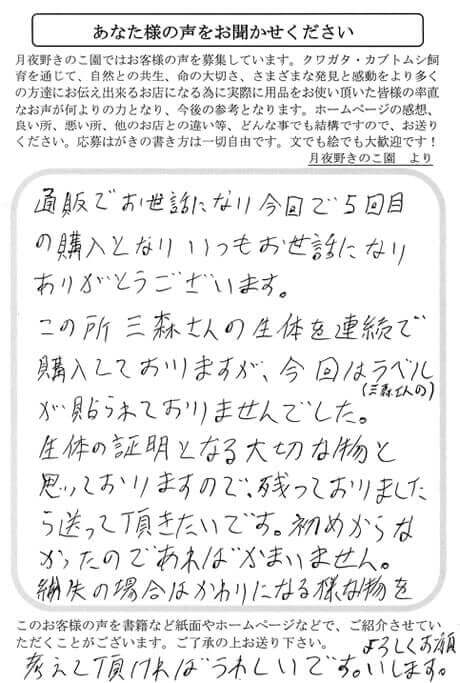 あなた様の声をお聞かせください
月夜野きのこ園ではお客様の声を募集しています。クワガタ・カブトムシ飼
育を通じて、自然との共生、命の大切さ、さまざまな発見と感動をより多く
の方達にお伝え出来るお店になる為に実際に用品をお使い頂いた皆様の率直
なお声が何よりの力となり、今後の参考となります。ホームページの感想、
良い所、悪い所、他のお店との違い等、どんな事でも結構ですので、お送り
ください。応募はがきの書き方は一切自由です。文でも絵でも大歓迎です！
月夜野きのこ園　より
通販でお世話になり今回で5回目
の購入となりいつもお世話になり
ありがとうございます。
この所三森さんの生体を連続で
購入しておりますが、今回はラベル
(三森さんの)
が貼られておりませんでした。
生体の証明となる大切な物と
思っておりますので、残っておりました
ら送って頂きたいです。初めからな
かったのであればかまいません。
紛失の場合はかわりになる様な物を
このお客様の声を書籍など紙面やホームページなどで、ご紹介させてい
ただくことがございます。ご了承の上お送り下さい。
考えて頂ければうれしいです。
よろしくお願
いします。